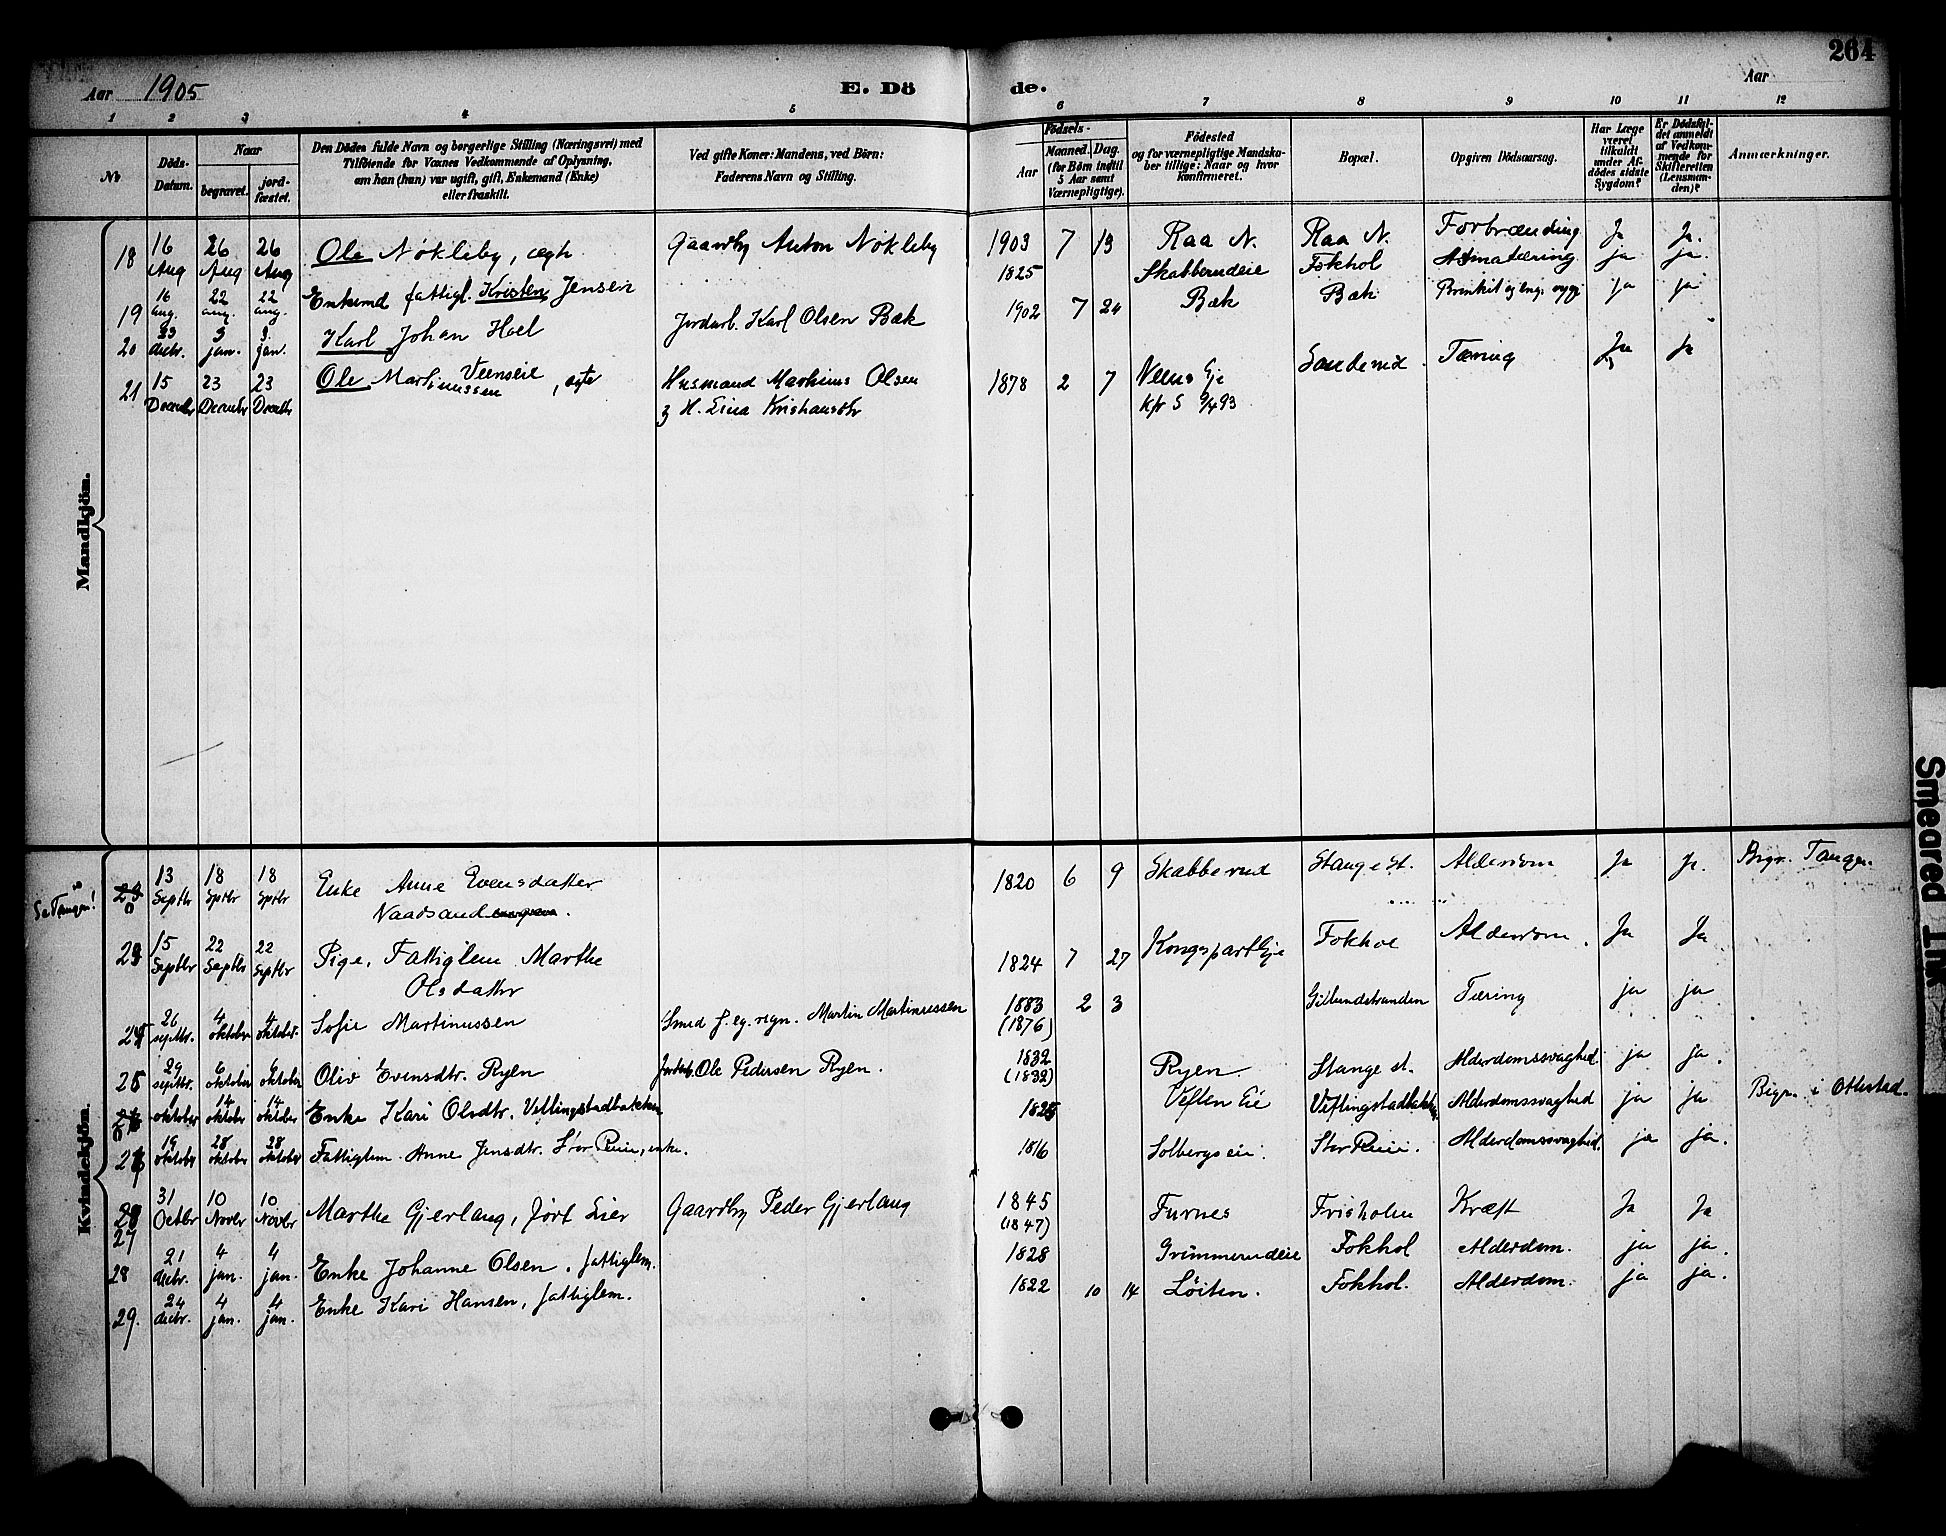 264
Aar 1905
E. Dö
de.
Aar
1 2 3 4 5 6 7 8 9 10 11 12
No
Döds-
Datum.
Naar
begravet.
jord-
fæstet.
Den Dödes fulde Navn og borgerlige Stilling (Næringsvei) med
Tilföiende for Voxnes Vedkommende af Oplysning,
om han (hun) var ugift, gift, Enkemand (Enke)
eller fraskilt.
Ved gifte Koner: Mandens, ved Börn:
Faderens Navn og Stilling.
Födsels-
Aar
Maaned. Dag.
(for Börn indtil
5 Aar samt
Værnepligtige).
Födested
og for værnepligtige Mandska-
ber tillige: Naar og hvor
konfirmeret.
Bopæl.
Opgiven Dödsaarsag.
Har Læge
været
tilkaldt
under Af-
dödes sidste
Sygdom?
Er Dödsfal-
det anmeldt
af Vedkom-
mende for
Skifteretten
(Lensman-
den)?
Anmærkninger.
Mandkjön.
18 16 Aug 26 Aug 26 Aug Ole Nøkleby, ægte Gaardbr Anton Nøkleby 1903 7 13 Raa N. Raa N. Forbrænding Ja Ja.
19 16 aug. 22 aug. 22 aug. Enkemd fattigl. Kristen Jensen 1825 Skabberudeie Fokhol Astma tæring ja ja.
20 29 decbr. 3 jan. 3 jan. Karl Johan Hoel Jordarb. Karl Olsen Bæk 1902 7 24 Bæk Bæk ja ja
21 15 Decembr 23 Decembr 23 Decembr Ole Martinussen Veenseie, ægte Husmand Martinus Olsen 1878 2 7 Veens Eje Sanderud. Tæring Ja Ja
& H. Lina Kristiansdtr Kfr S 9/4 93
Kvindekjön.
Se Tangen! 23 0 13 Septbr 18 Septbr 18 Septbr Enke Anne Evensdatter 1820 6 9 Skabberud Stange St. Alderdom Ja Ja. Begr. Tangen.
Naadsand
23 15 Septbr 22 Septbr 22 Septbr Pige, Fattiglem Marthe 1824 7 27 Kongspart Eje Fokhol Alderdom. Ja Ja
Olsdatter
24 26 septbr. 4 oktober 4 oktober. Sofie Martinussen Smed f. eg. regn. Martin Martinussen 1883 (1876) 2 3 Gillundstranden Tæring ja ja.
25 29 septbr. 6 oktober 6 oktober Oliv Evensdtr. Ryen Jordarb. Ole Pedersen Ryen. 1832 (1832) Ryen. Stange st. Alderdomssvaghed. ja ja.
0 oktober 14 oktober 14 oktober Enke Kari Olsdtr. Vestlingstadbakken 1825 Veflen Eie Veflingstadbakken Alderdomssvaghed ja ja Begr. i Ottestad.
26 19 oktober 28 oktober 28 oktober Fattiglem. Anne Jensdtr. Stor Ruie, enke. 1816 Solbergseie. Stor Ruie. Alderdomssvaghed. ja ja.
27 31 Octbr 10 Novbr 10 Novbr Marthe Gjerlaug, født Lier Gaardbr Peder Gjerlaug 1845 (1847) Furnes Frisholm Kræft Ja Ja
28 21 decbr. 4 jan. 4 jan. Enke Johanne Olsen, fattiglem. 1828 Grimmerudeie Fokhol Alderdom. ja ja.
29. 24 decbr. 4 jan. 4 jan. Enke Kari Hansen, fattiglem. 1822 10 14 Løiten. Fokhol. Alderdom. ja ja.
Smeared Ink